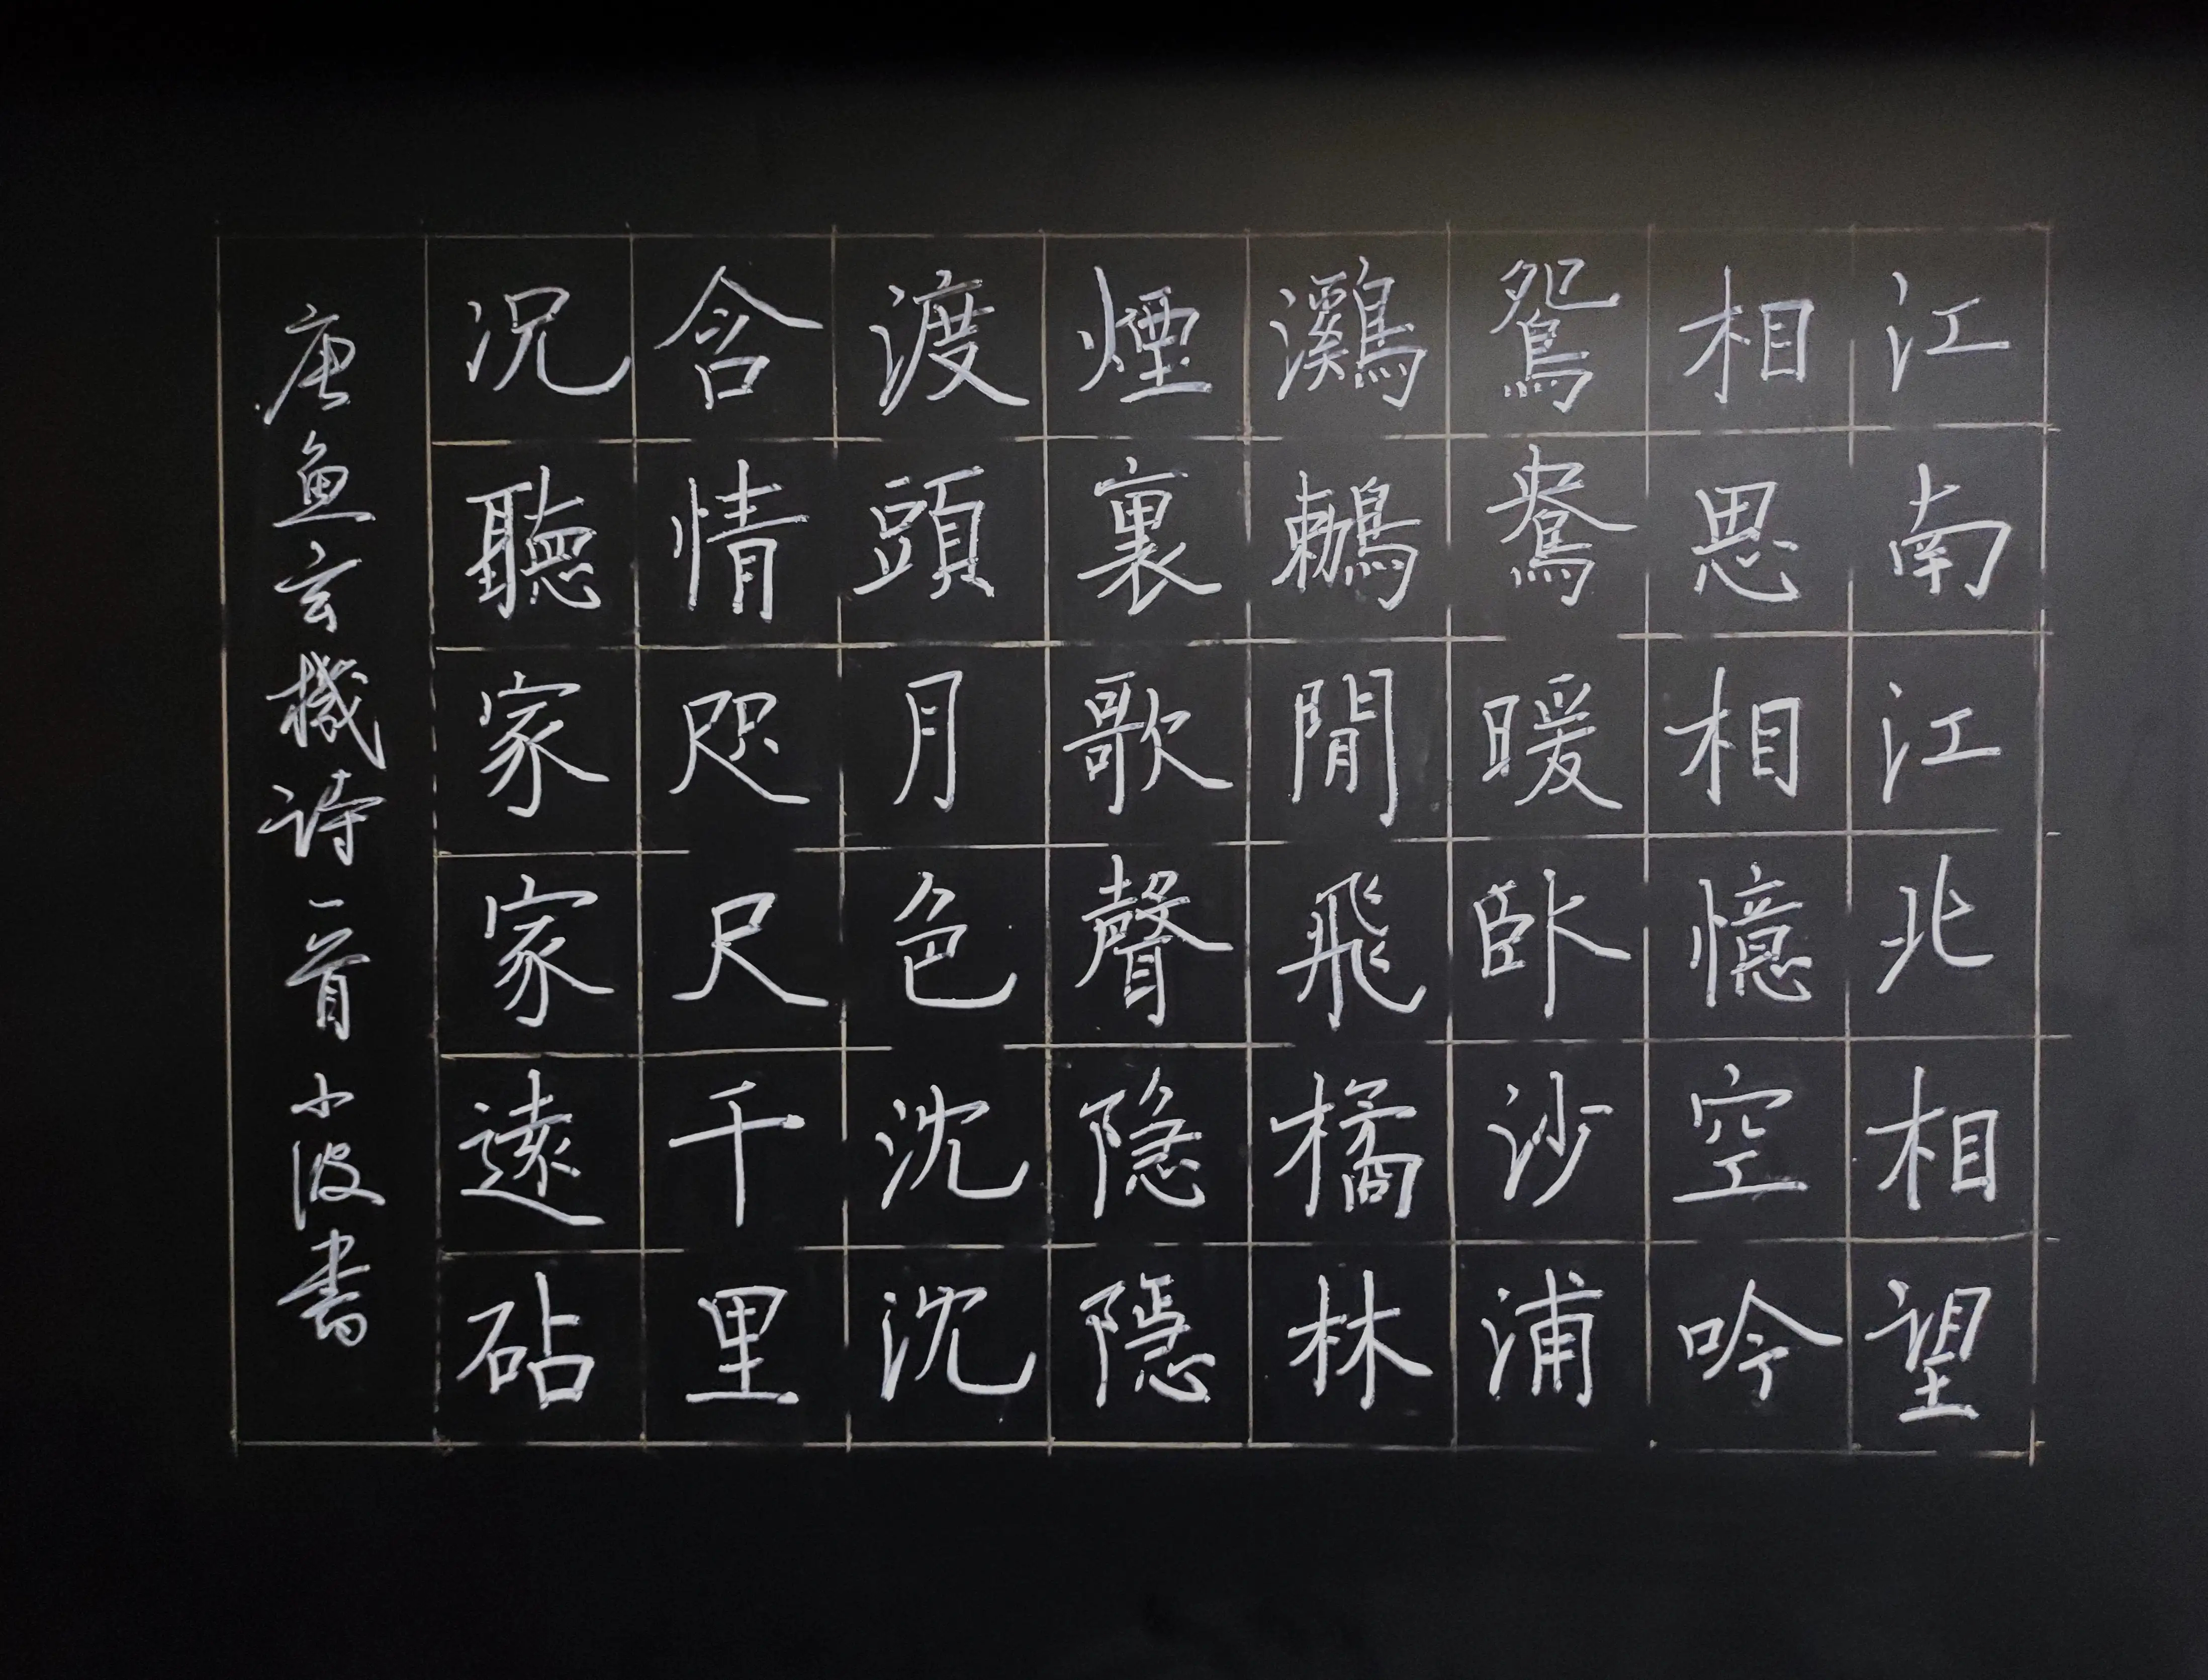 江南江北相望
相思相憶空吟
鴛鴦暖臥沙浦
鸂鶒閒飛橘林
煙裏歌聲隐隱
渡頭月色沈沈
含情咫尺千里
況聽家家遠砧
唐魚玄機詩一首小波書